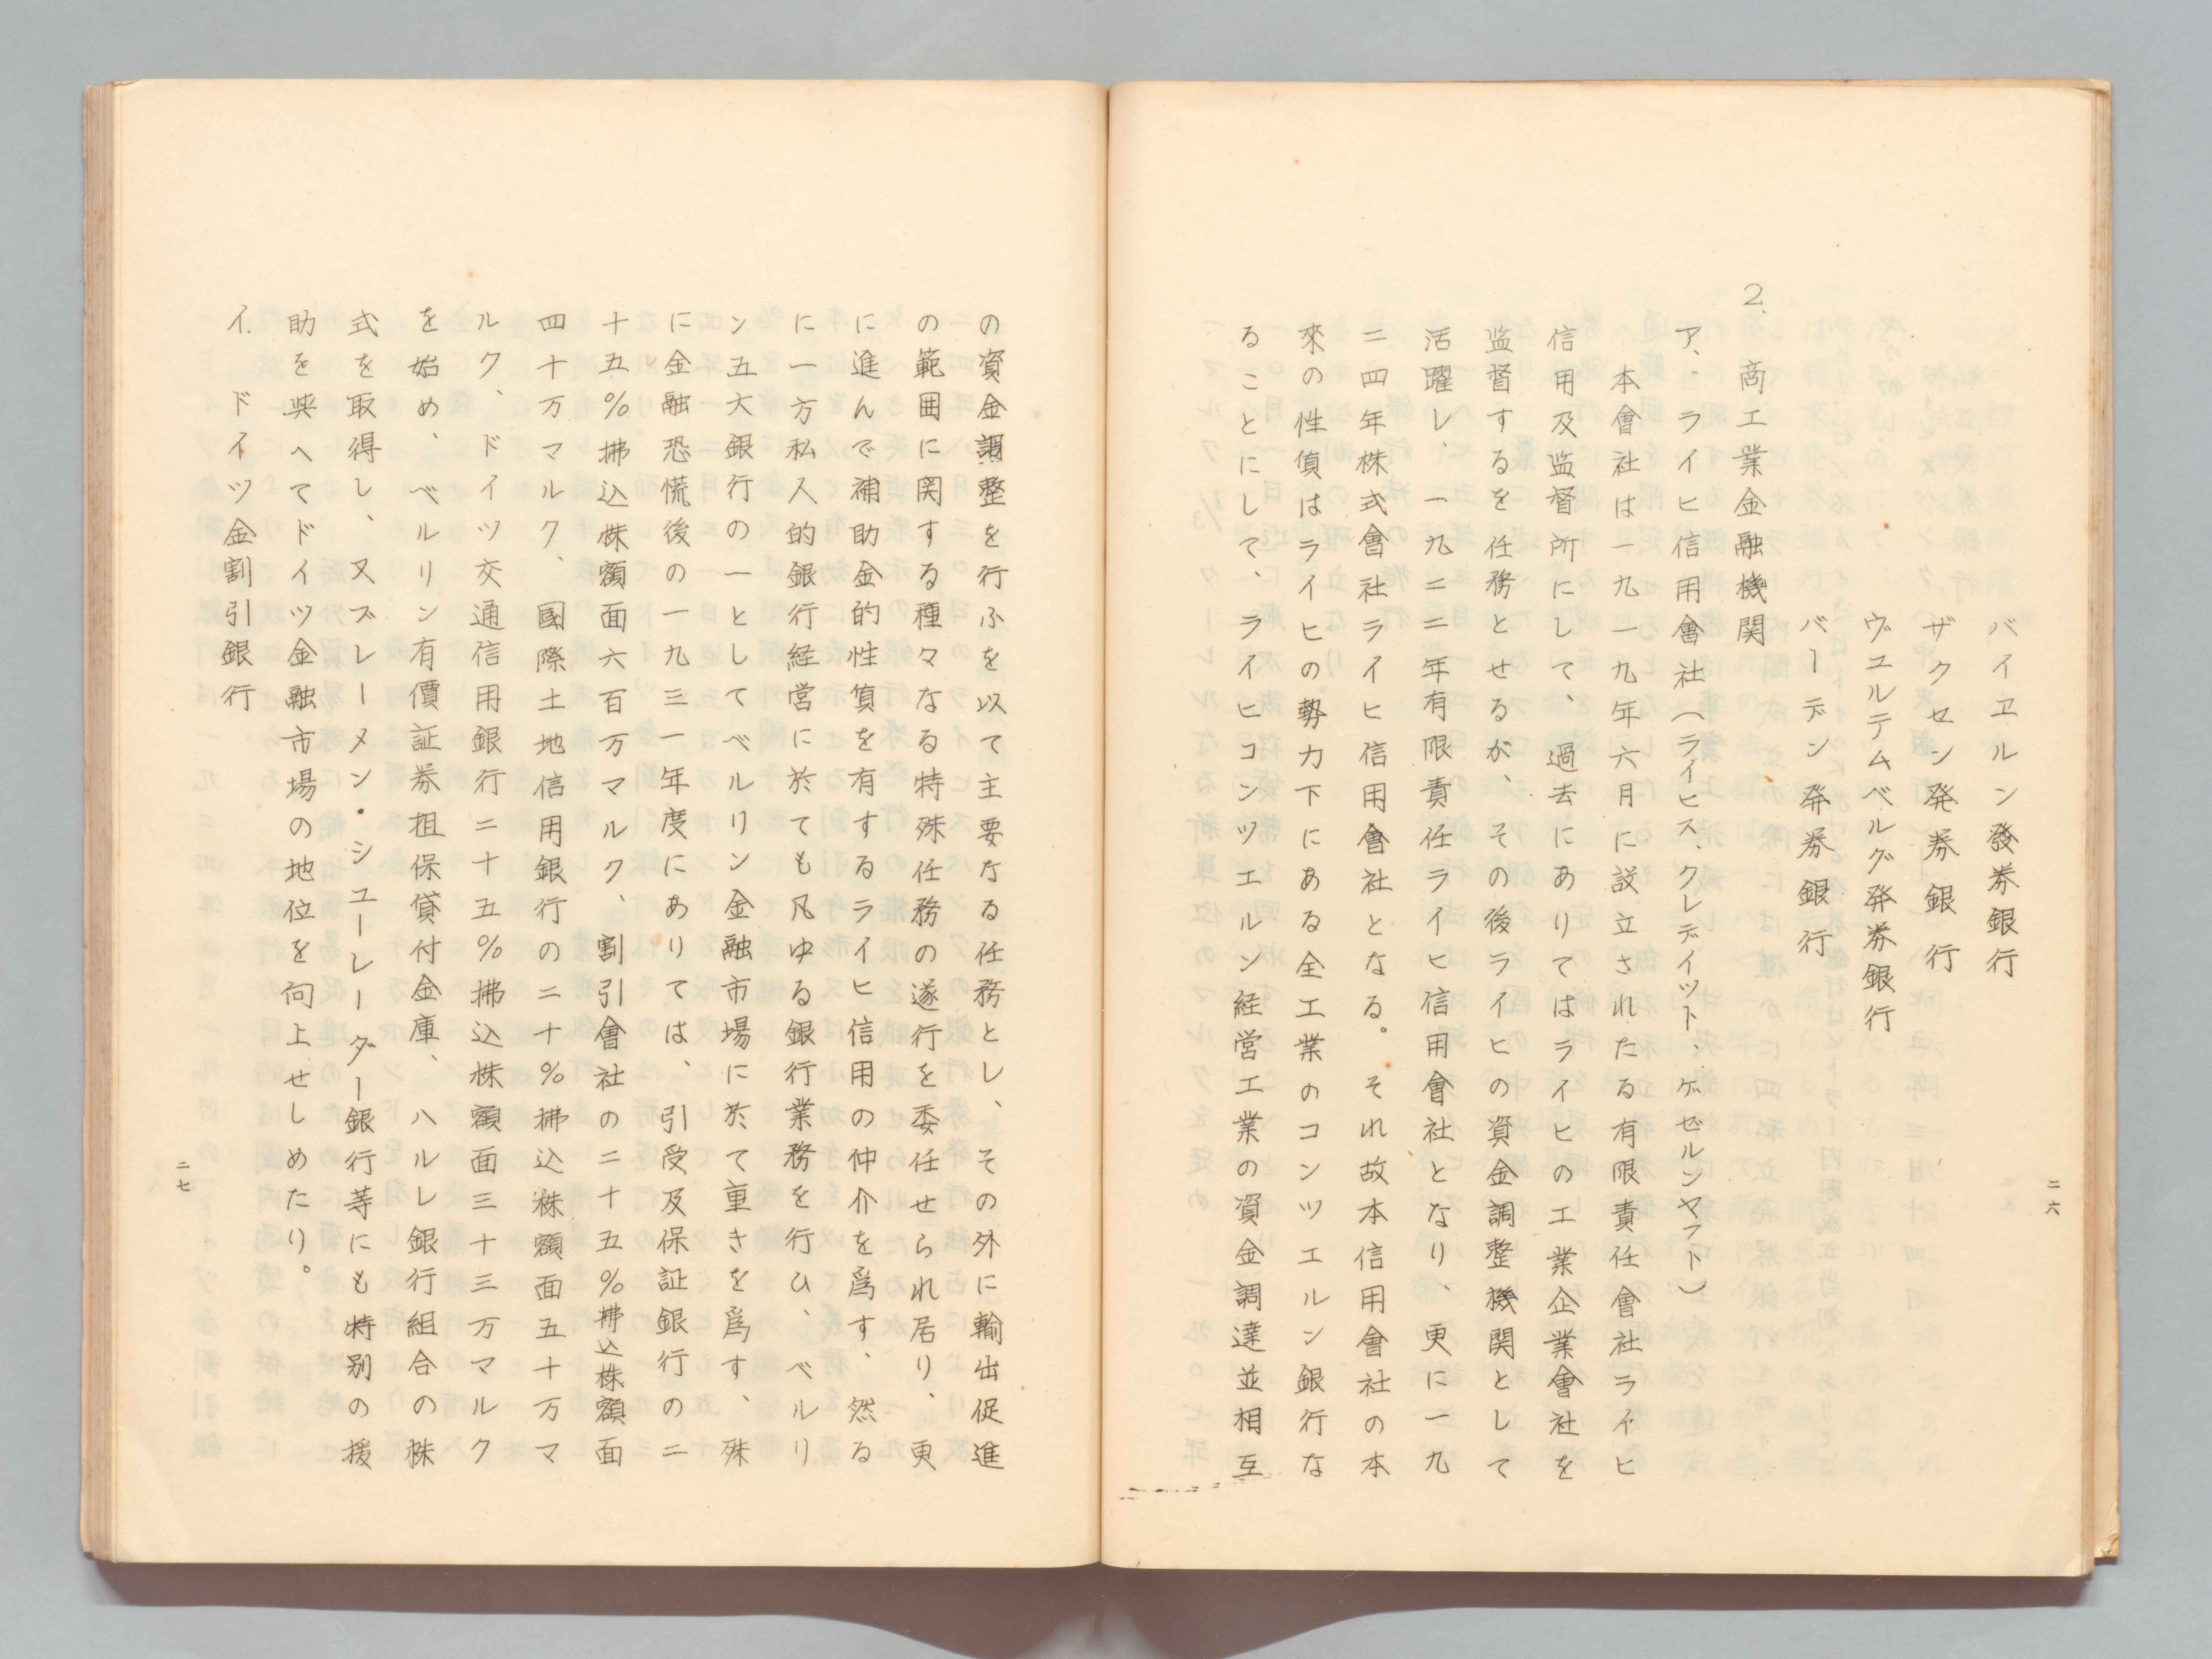 バイエルン發券銀行
ザクセン発券銀行
ヴュルテムベルグ発券銀行
バーデン発券銀行
2. 商工業金融機関
ア、ライヒ信用會社（ライヒス、クレデイット、ゲゼルンヤフト）
本會社は一九一九年六月に設立されたる有限責任會社ライヒ
信用及監督所にして、過去にありてはライヒの工業企業會社を
監督するを任務とせるが、その後ライヒの資金調整機関として
活躍し、一九二二年有限責任ライヒ信用會社となり、更に一九
二四年株式會社ライヒ信用會社となる。それ故本信用會社の本
來の性質はライヒの勢力下にある全工業のコンツエルン銀行な
ることにして、ライヒコンツエルン経営工業の資金調達並相互
二六
の資金調整を行ふを以て主要なる任務とし、その外に輸出促進
の範囲に関する種々なる特殊任務の遂行を委任せられ居り、更
に進んで補助金的性質を有するライヒ信用の仲介を爲す、然る
に一方私人的銀行経営に於ても凡ゆる銀行業務を行ひ、ベルリ
ン五大銀行の一としてベルリン金融市場に於て重きを爲す、殊
に金融恐慌後の一九三一年度にありては、引受及保証銀行の二
十五％拂込株額面六百万マルク、割引會社の二十五％拂込株額面
四十万マルク、國際土地信用銀行の二十％拂込株額面五十万マ
ルク、ドイツ交通信用銀行二十五％拂込株額面三十三万マルク
を始め、ベルリン有價証券担保貸付金庫、ハルレ銀行組合の株
式を取得し、又ブレーメン・シユーレーダー銀行等にも特別の援
助を與へてドイツ金融市場の地位を向上せしめたり。
イ. ドイツ金割引銀行
二七